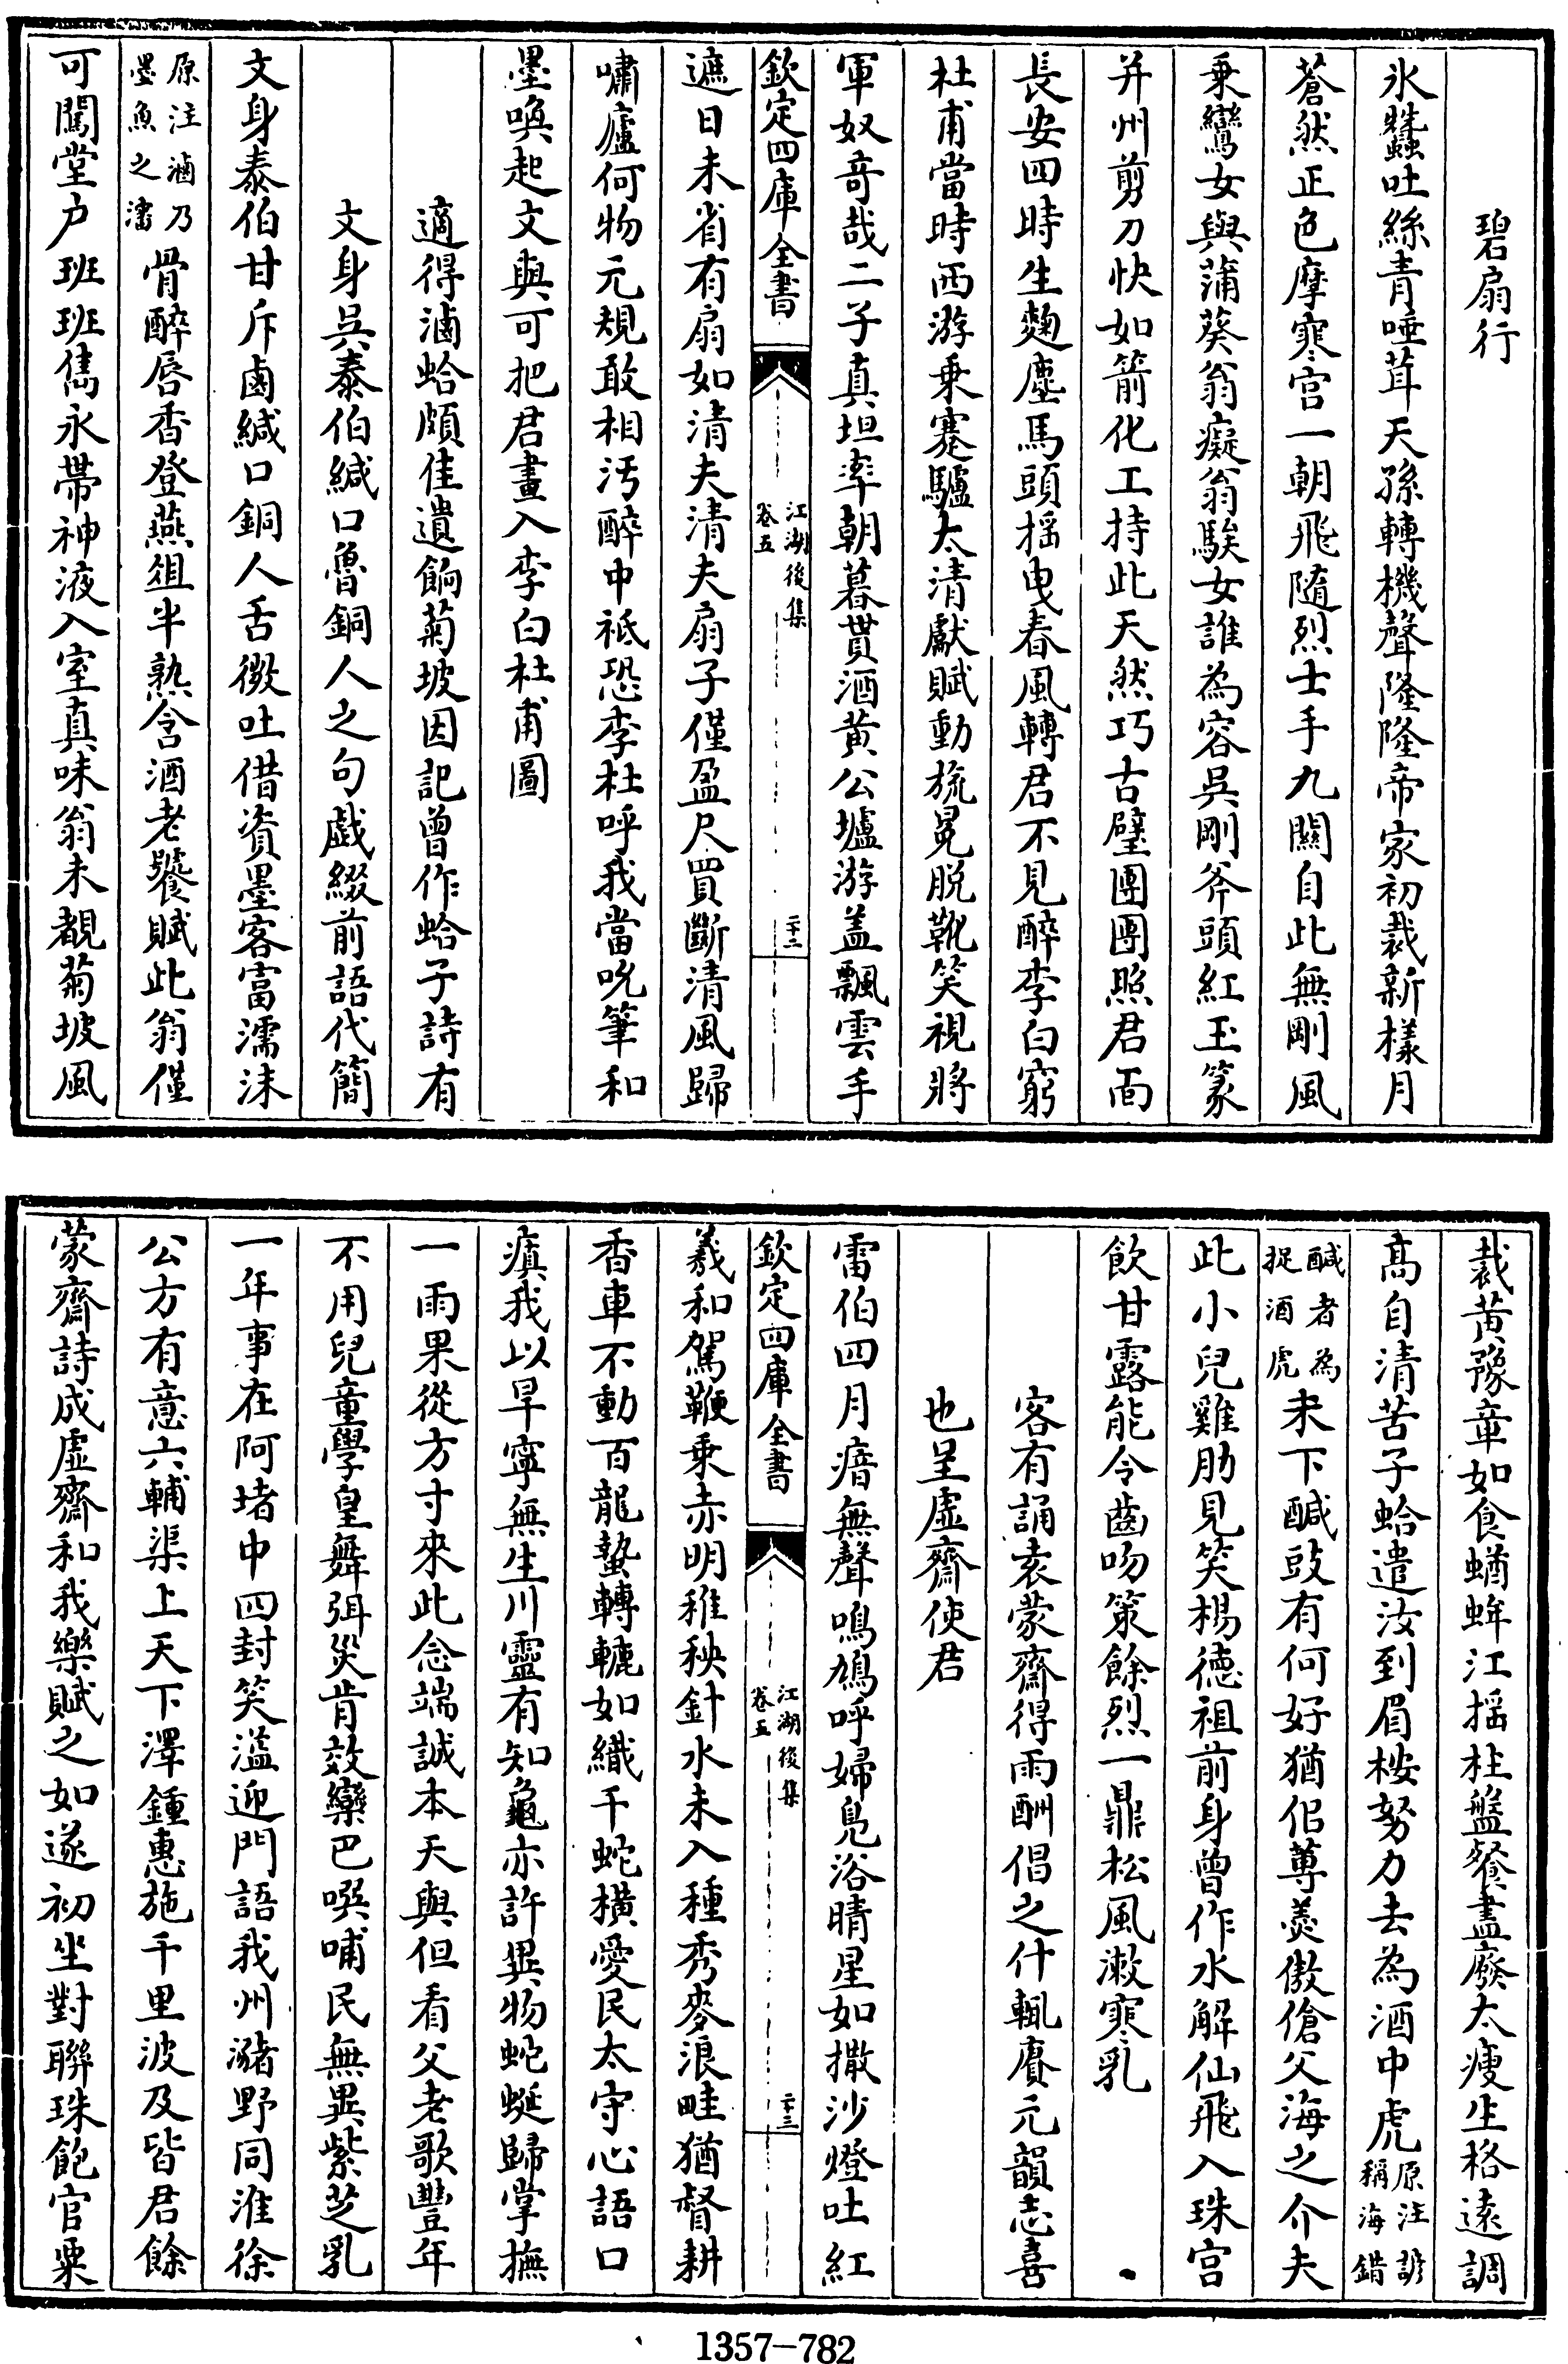 碧扇行
氷蠶吐絲青唾茸天孫轉機聲隆隆帝家初裁新樣月
蒼然正色摩寒宫一朝飛隨烈士手九闗自此無剛風
乗鸞女與蒲葵翁癡翁騃女誰為容吳剛斧頭紅玉篆
并州剪刀快如箭化工持此天然巧古璧團團照君面
長安四時生麴塵馬頭揺曳春風轉君不見醉李白窮
杜甫當時西游乗蹇驢太清獻賦動旒冕脱靴笑視將
軍奴竒哉二子真坦率朝暮貰酒黄公壚游盖飄雲手
欽定四庫全書
江湖後集
卷五
二十二
遮日未省有扇如清夫清夫扇子僅盈尺買斷清風歸
嘯廬何物元規敢相汚醉中祗恐李杜呼我當吮筆和
墨喚起文與可把君畫入李白杜甫圖
適得滷蛤頗佳遺餉菊坡因記曾作蛤子詩有
文身吳泰伯緘口魯銅人之句戯綴前語代簡
文身泰伯甘斥鹵緘口銅人舌微吐借資墨客富濡沫
原注滷乃
墨魚之瀋
骨醉唇香登燕俎半熟含酒老饕賦此翁僅
可闖堂户班班雋永帶神液入室真味翁未覩菊坡風
裁黄豫章如食蝤蛑江揺柱盤餐盡廢太瘦生格逺調
髙自清苦子蛤遣汝到眉桉努力去為酒中虎
原注諺
稱海錯
醎者為
捉酒虎
未下醎豉有何好猶佀蓴羮傲傖父海之介夫
此小兒雞肋見笑楊徳祖前身曾作水解仙飛入珠宫
飲甘露能令齒吻策餘烈一鼎松風漱寒乳
客有誦袁蒙齋得雨酬倡之什輒賡元韻志喜
也呈虚齋使君
雷伯四月瘖無聲鳴鳩呼婦鳬浴晴星如撒沙燈吐紅
欽定四庫全書
江湖後集
卷五
二十三
羲和駕鞭乗赤明稚秧針水未入種秀麥浪畦猶督耕
香車不動百龍蟄轉轆如織千蛇横愛民太守心語口
瘨我以旱寧無生川靈有知龜亦許異物蛇蜒歸掌撫
一雨果從方寸來此念端誠本天與但看父老歌豐年
不用兒童學皇舞弭災肯效欒巴噀哺民無異紫芝乳
一年事在阿堵中四封笑溢迎門語我州瀦野同淮徐
公方有意六輔渠上天下澤鍾惠施千里波及皆君餘
蒙齋詩成虚齋和我樂賦之如遂初坐對聯珠飽官粟
1357-782